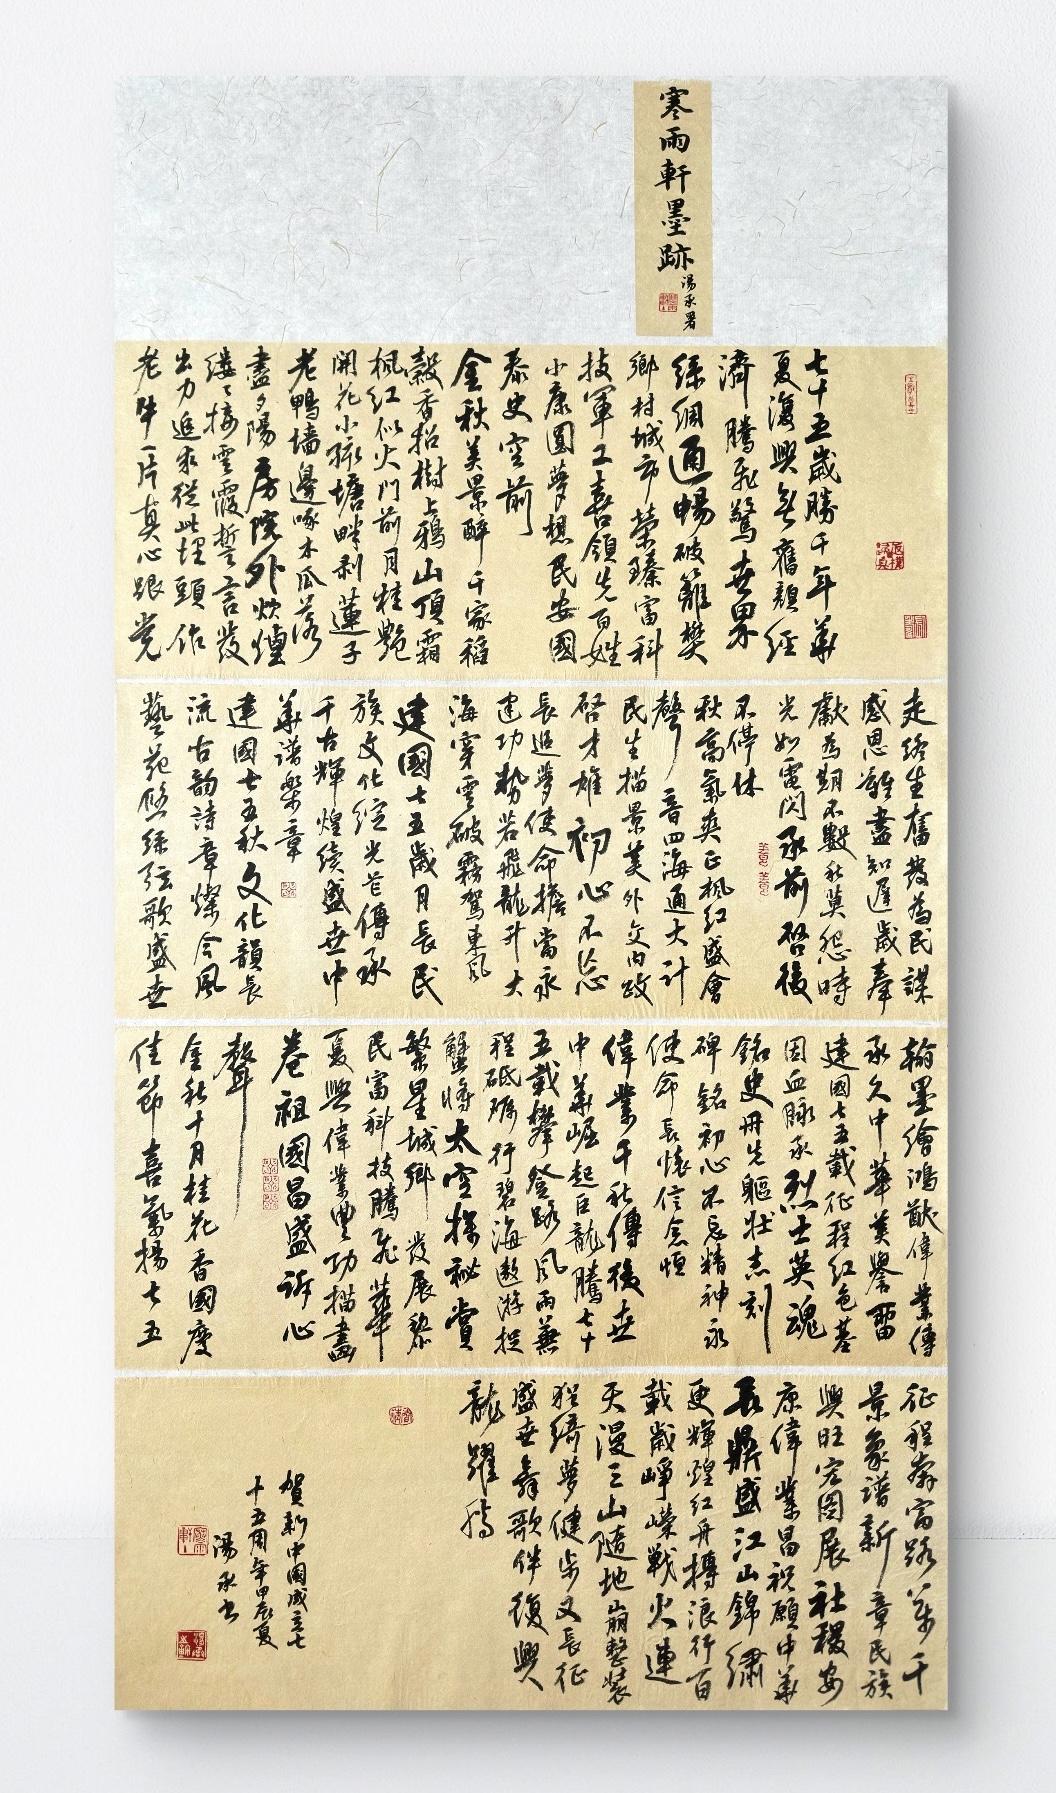 寒雨軒墨跡
湯永署
七十五歲勝千年華
夏復興無舊顏經
濟騰飛驚世界
綠網通暢破籬樊
鄉村城市榮臻富科
技軍工喜領先百姓
小康圓夢想民安國
泰史空前
金秋美景醉千家稻
穀香招樹上鴉山頂霜
楓紅似火門前月桂艷
開花小孩塘畔剥蓮子
老鴨墙邊啄木瓜落
盡夕陽房院外炊煙
縷縷接雲霞誓言發
出力追求從此埋頭作
老牛一片真心跟党
走終生奮發為民謀
感恩難盡知遲歲奉
獻為期不數秋莫怨時
光如電閃承前啓後
不停休
秋高氣爽正楓紅盛會
聲音四海通大計
民生描景美外交内政
啓才雄初心不忘
長追夢使命擔當永
建功勢若飛龍升大
海穿雲破霧駕東風
建國七五歲月長民
族文化綻光芒傳承
千古輝煌續盛世中
華譜樂章
建國七五秋文化韻長
流古韵詩章燦今風
藝苑悠絲弦歌盛世
翰墨繪鴻猷偉業傳
承久中華美譽留
建國七五載征程紅色基
因血脉承烈士英魂
銘史冊先軀壯志刻
碑銘初心不忘精神永
使命長懷信念恒
偉業千秋傳後世
中華崛起巨龍騰七十
五載攀登路風雨兼
程砥礪行碧海遨游捉
蟹將太空探秘賞
繁星城鄉發展黎
民富科技騰飛華
夏興偉業豐功描畫
卷祖國昌盛訴心
聲
金秋十月桂花香國慶
佳節喜氣揚七五
征程奔富路萬千
景象譜新章民族
興旺宏圖展社稷安
康偉業昌祝願中華
長鼎盛江山錦繡
更輝煌紅舟搏浪行百
載歲崢嶸戰火連
天漫三山隨地崩整裝
犯綺夢健步又長征
盛世舞歌伴復興
龍躍騰
賀新中國成立七
十五周年甲辰夏
湯永書